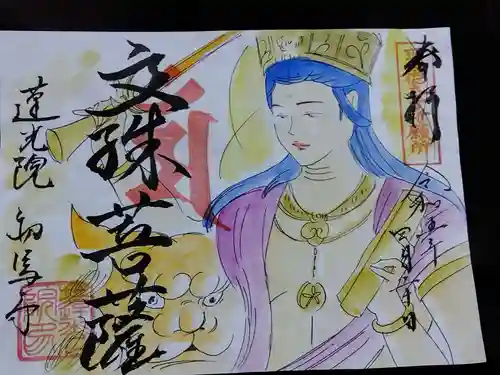 奉拝
令和五年
四月十日
文殊菩薩
蓮光院 初馬寺